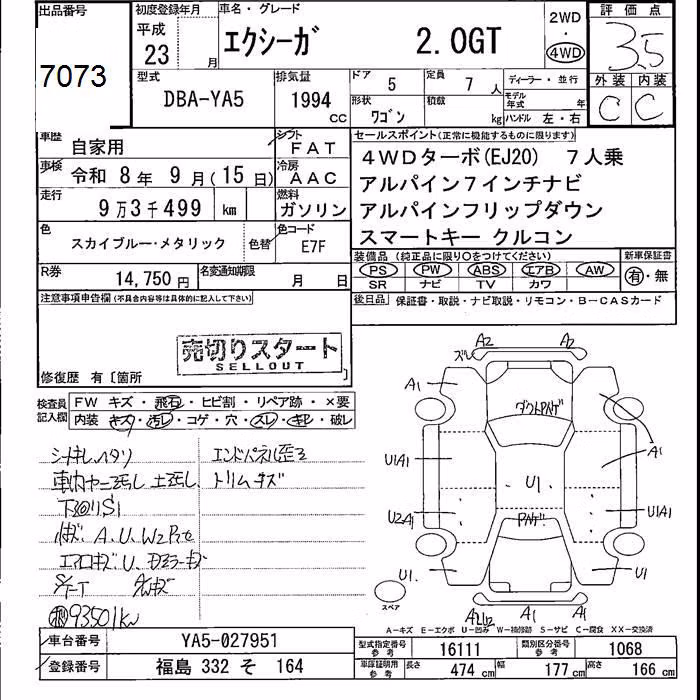 出品番号
7073
初度登録年月
平成
23 月
車名・グレード
エクシーガ 2.0GT
2WD
・
4WD
評価点
3.5
型式
DBA-YA5
排気量
1994 cc
ドア 5
定員 7 人
形状 ワゴン
積載 kg
ディーラー・並行
モデル年式 年
ハンドル 左・右
外装 内装
C C
車歴 自家用
シフト FAT
車検 令和 8 年 9 月 ( 15 日)
冷房 AAC
走行 9 万 3 千 499 km
燃料 ガソリン
色 スカイブルー・メタリック
色替
色コード E7F
R券 14,750 円
名変通知期限 月 日
セールスポイント(正常に機能するものに限ります)
4WDターボ(EJ20) 7人乗
アルパイン7インチナビ
アルパインフリップダウン
スマートキー クルコン
装備品 (純正品に限り○をつけてください)
PS PW ABS エアB AW
SR ナビ TV カワ
新車保証書
有・無
後日品 保証書・取説・ナビ取説・リモコン・B-CASカード
注意事項申告欄 (不具合内容等は具体的に記入して下さい)
売切りスタート
SELLOUT
修復歴 有 〔箇所
検査員記入欄
FW キズ・飛石・ヒビ割・リペア跡・×要
内装 キズ・汚レ・コゲ・穴・スレ・キレ・破レ
エンドパネル歪ミ
トリムキズ
下回リS1
A.U.W2
93501km
A2 A2
A1
ダクトパネゲ
A1
U1A1
U1
U2A1
U1A1
パネゲ
U1
U1
スペア
A1 A1
A-キズ E-エクボ U-凹み W-補修跡 S-サビ C-腐食 XX-交換済
車台番号 YA5-027951
登録番号 福島 332 そ 164
型式指定番号 参考 16111
類別区分番号 参考 1068
車庫証明用 参考 長さ 474 cm 幅 177 cm 高さ 166 cm